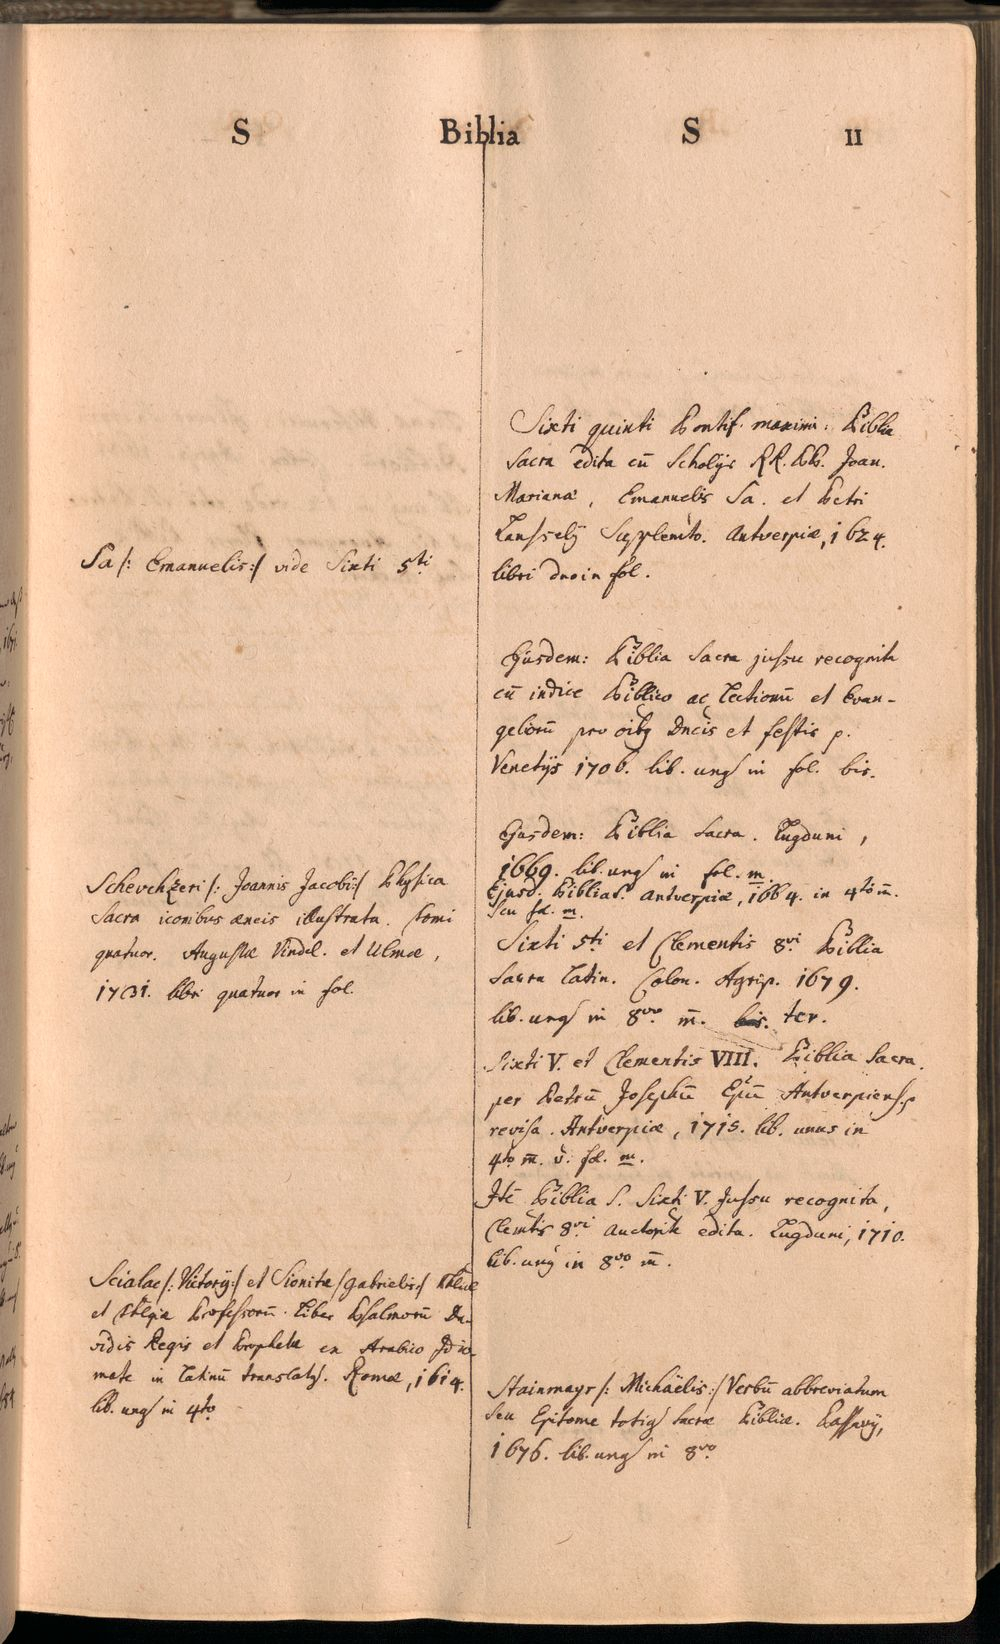 S Biblia S 11
Sa /: Emanuelis :/ vide Sixti 5ti
Scheuchzeri /: Joannis Jacobi :/ Physica
Sacra iconibus æneis illustrata. tomi
quatuor. Augustæ Vindel. et Ulmæ,
1731. libri quatuor in fol.
Scialac /: Victorij :/ et Sionitæ /: Gabrielis :/
et Professorū. Liber Psalmorū Da-
vidis Regis et Prophetæ ex Arabico Idio-
mate in Latinū translatus. Romæ, 1614.
lib. unus in 4to
Sixti quinti Pontif. maximi: Biblia
Sacra edita cū Scholijs RR. PP. Joan.
Marianæ, Emanuelis Sa. et Petri
Lansselij Supplemto. Antverpiæ, 1624.
libri duo in fol.
Ejusdem: Biblia Sacra jussu recognita
cū indice Biblico ac Lectionū et Evan-
geliorū pro oibus Dncis et festis p.
Venetijs 1706. lib. unus in fol. bis.
Ejusdem: Biblia Sacra. Lugduni,
1669. lib. unus in fol. m.
Ejusd. Biblia S. Antverpiæ, 1664. in 4to m̄.
seu fol. m.
Sixti 5ti et Clementis 8vi Biblia
Sacra Latin. Colon. Agrip. 1679.
lib. unus in 8vo. m̄. bis. ter.
Sixti V. et Clementis VIII. Biblia Sacra.
per Petrū Josephū Epūm Antverpiens.
revisa. Antverpiæ, 1715. lib. unus in
4to m̄. v. fol. m.
Itē Biblia S. Sixti V. Jussu recognita,
Clemtis 8vi auctorite edita. Lugduni, 1710.
lib. unus in 8vo m̄.
Stainmayr /: Michaëlis :/ Verbū abbreviatum
seu Epitome totius Sacræ Bibliæ. Passavij,
1676. lib. unus in 8vo